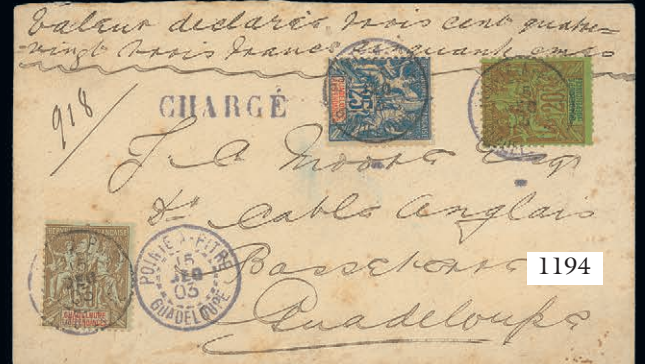 Valeur déclarée trois cent quatre-
vingt trois francs cinquante cmes
918/
CHARGÉ
25
20
J. A. Moore Esqr
Dr Cable Anglais
Basseterre
1194
Guadeloupe
GUADELOUPE
POINTE-A-PITRE
15
03
GUADELOUPE